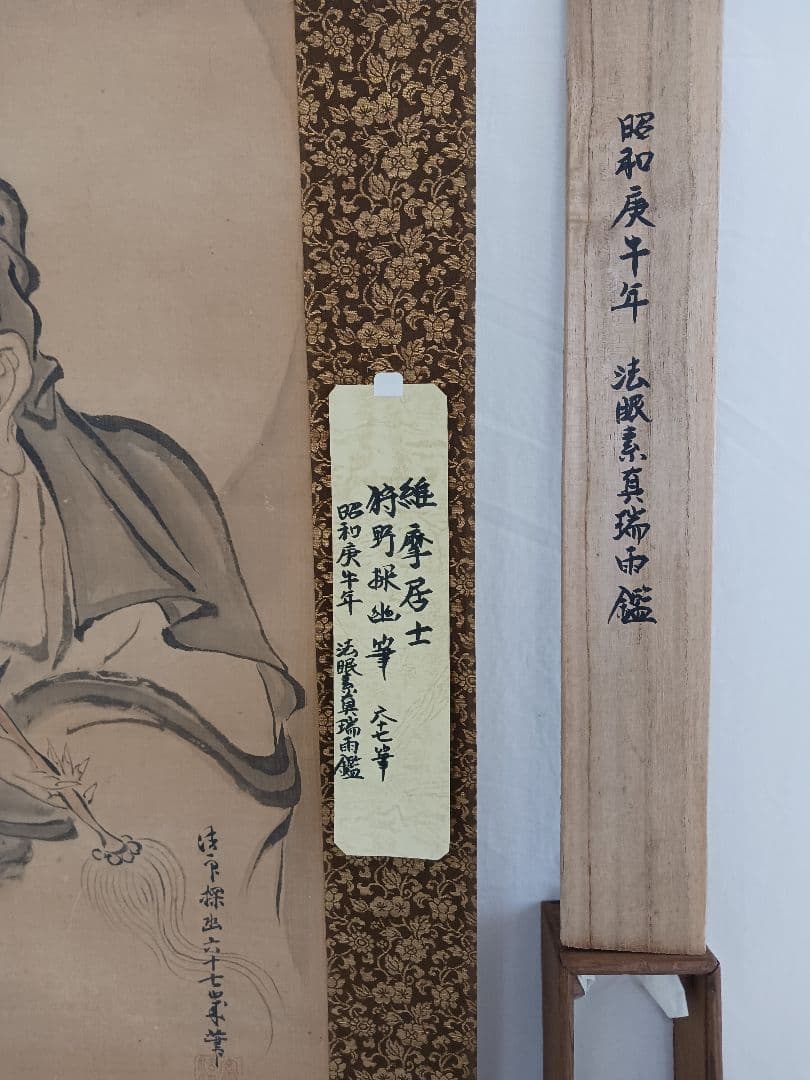 昭和庚午年 法眼素真瑞雨鑑
維摩居士
狩野探幽筆 六十七筆
昭和庚午年 法眼素真瑞雨鑑
法印探幽六十七歳筆